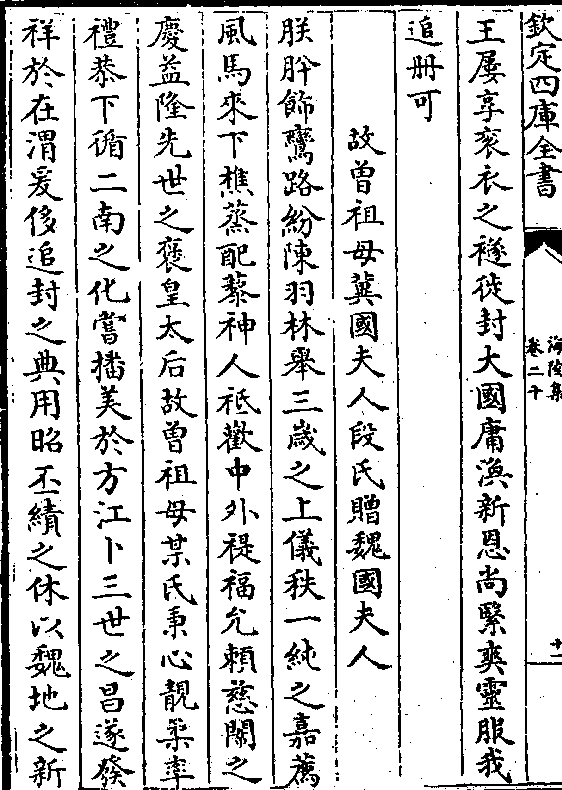 欽定四庫全書
海陵集
卷二十
十一
王屡享衮衣之襚徙封大國庸渙新恩尚緊爽靈服我
追册可
故曾祖母冀國夫人段氏贈魏國夫人
朕肸飾鸞路紛陳羽林舉三歲之上儀秩一純之嘉薦
風馬來下樵蒸配藜神人祗歡中外禔福允賴慈闈之
慶益隆先世之襃皇太后故曾祖母某氏秉心靚榘率
禮恭下循二南之化嘗播美於方江卜三世之昌遂發
祥於在渭爰侈追封之典用昭丕績之休以魏地之新